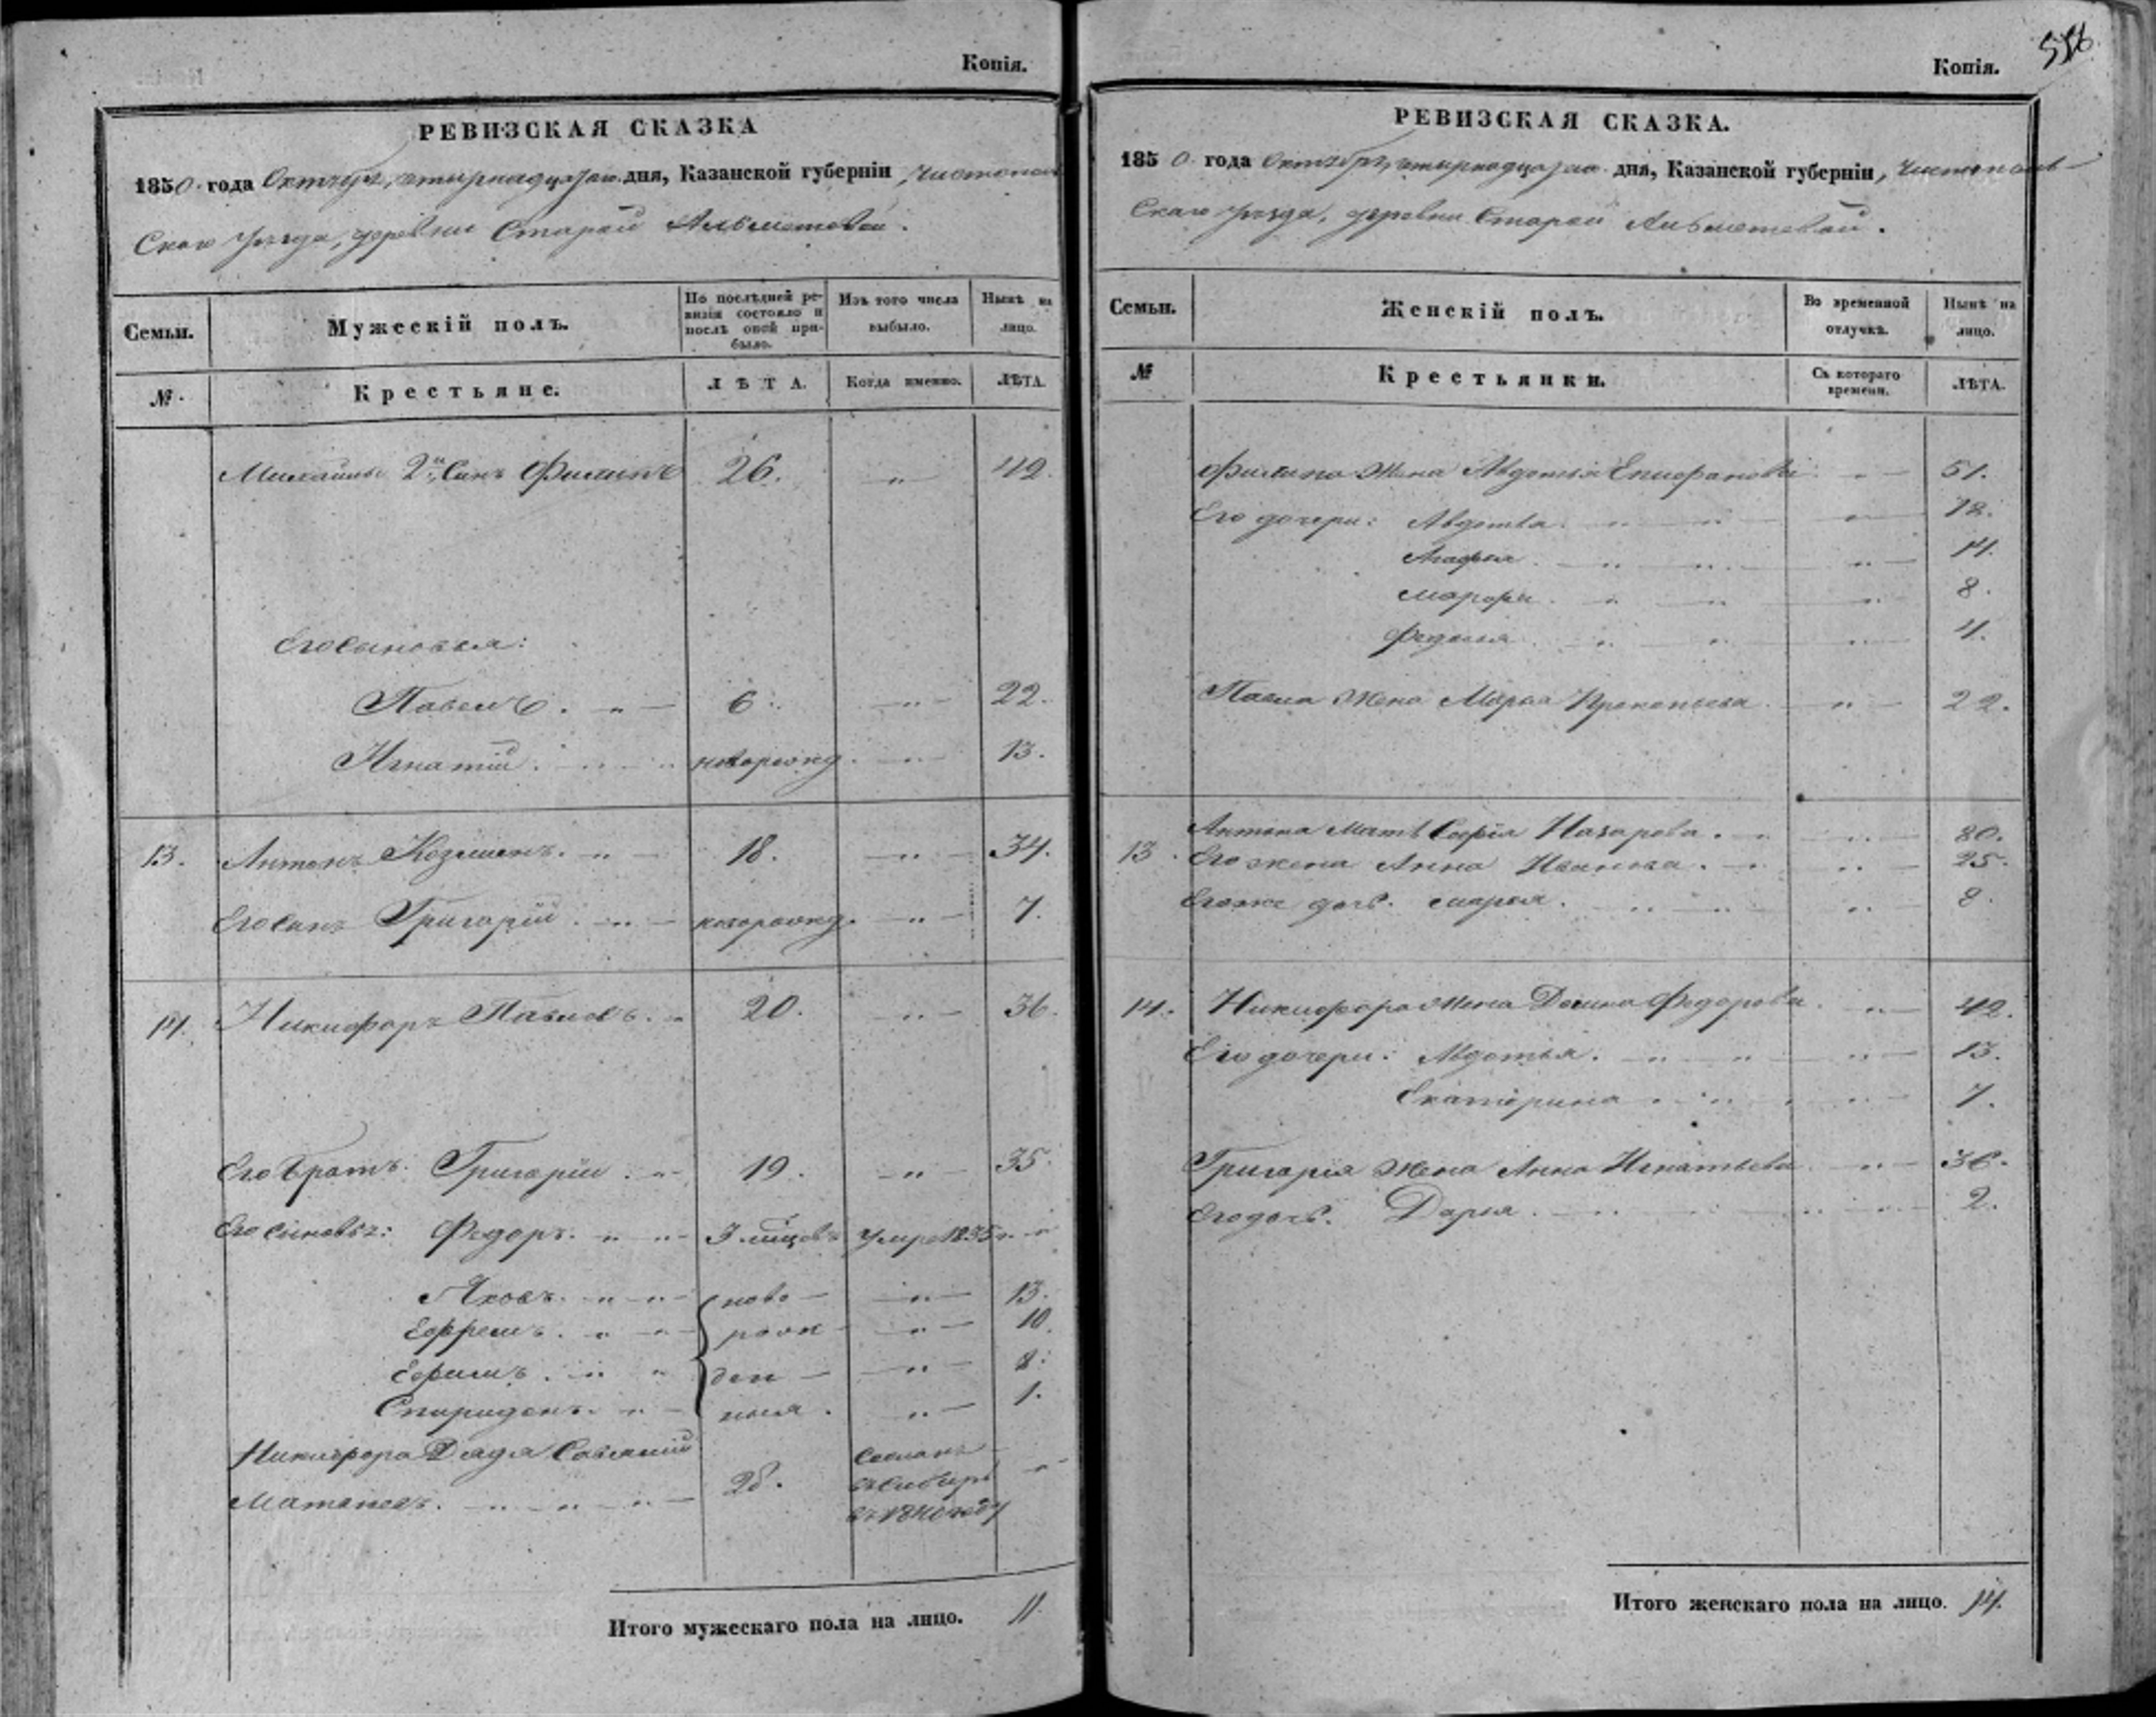 Копія.
РЕВИЗСКАЯ СКАЗКА
1850 года Октября четырнадцатаго дня, Казанской губерніи, Чистополь
скаго уѣзда, деревни Старой Альметевой.
Семьи.
Мужескій полъ.
По послѣдней ре-
визіи состояло и
послѣ оной при-
было.
Изъ того числа
выбыло.
Нынѣ на
лицо.
№.
Крестьяне.
ЛѢТА.
Когда именно.
ЛѢТА.
Михайлы 2й Сынъ Филипъ 26. „ 42.
Его сыновья:
Павелъ. „ 6. „ 22.
Игнатій. „ новорожд. „ 13.
13. Антонъ Козминъ. „ 18. „ 34.
Его сынъ Григорій. „ новорожд. „ 7.
14. Никифоръ Павловъ. „ 20. „ 36.
Его братъ Григорій. „ 19. „ 35.
Его сыновья: Федоръ. „ „ умре 1835 г. „
Яковъ. „ „ ново „ 13.
Ефремъ. „ „ рож „ 10.
Ефимъ. „ „ ден „ 8.
Спиридонъ. „ ныя. „ 1.
Никифора Дядя Савелий
„ „ „ 28. „
Сосланъ
въ Сибирь
въ 1840 году
Итого мужескаго пола на лицо. 11.
Копія.
556
РЕВИЗСКАЯ СКАЗКА.
1850. года Октября, четырнадцатаго дня, Казанской губерніи, Чистополь-
скаго уѣзда, деревни Старой Альметевой.
Семьи.
Женскій полъ.
Во временной
отлучкѣ.
Нынѣ на
лицо.
№
Крестьянки.
Съ котораго
времени.
ЛѢТА.
Филипа Жена Авдотья Епифанова „ 51.
Его дочери: Авдотья „ „ „ 18.
Агафья. „ „ „ 14.
Марфа. „ „ „ 8.
Федосья. „ „ „ 4.
Павла Жена Марья Прокопьева. „ 22.
13. Антона Мать Софія Назарова. „ „ 80.
Его жена Анна Иванова. „ „ 25.
Его же дочь. Марья. „ „ „ 8.
14. Никифора Жена Домна Федорова. „ 42.
Его дочери: Авдотья. „ „ „ 13.
Екатерина „ „ „ 7.
Григорія Жена Анна Игнатьева „ 36.
Его дочь. Дарья. „ „ „ 2.
Итого женскаго пола на лицо. 14.